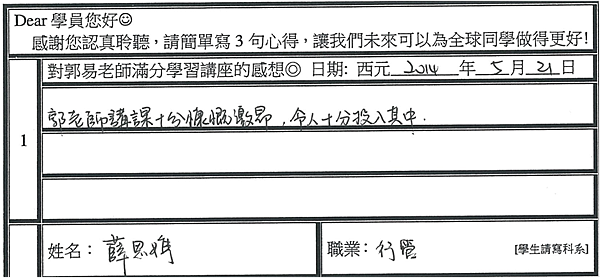 Dear 學員您好☺
感謝您認真聆聽，請簡單寫 3 句心得，讓我們未來可以為全球同學做得更好!
對郭易老師滿分學習講座的感想◎ 日期: 西元 2014 年 5 月 21 日
1
郭老師講課十分慷慨激昂，令人十分投入其中.
姓名： 薛思 職業： 行管 [學生請寫科系]